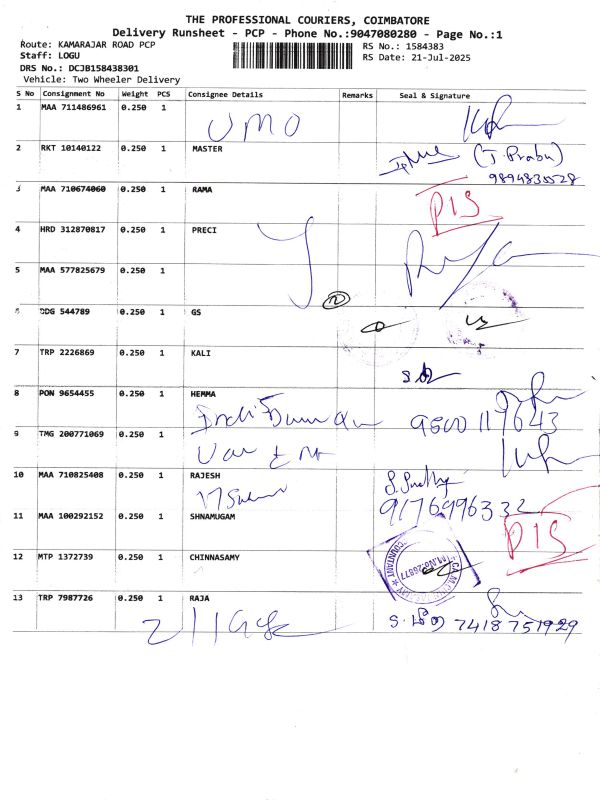 THE PROFESSIONAL COURIERS, COIMBATORE
Delivery Runsheet - PCP - Phone No.:9047080280 - Page No.:1
Route: KAMARAJAR ROAD PCP
Staff: LOGU
DRS No.: DCJB158438301
Vehicle: Two Wheeler Delivery
RS No.: 1584383
RS Date: 21-Jul-2025
S No Consignment No Weight PCS Consignee Details Remarks Seal & Signature
1 MAA 711486961 0.250 1
UMO
2 RKT 10140122 0.250 1 MASTER
(J. Prabu)
9894835528
3 MAA 710674060 0.250 1 RAMA
PIS
4 HRD 312870817 0.250 1 PRECI
5 MAA 577825679 0.250 1
6 DDG 544789 0.250 1 GS
7 TRP 2226869 0.250 1 KALI
8 PON 9654455 0.250 1 HEMMA
9600119643
9 TMG 200771069 0.250 1
10 MAA 710825408 0.250 1 RAJESH
9176996332
11 MAA 100292152 0.250 1 SHNAMUGAM
PIS
12 MTP 1372739 0.250 1 CHINNASAMY
M.No:26877
13 TRP 7987726 0.250 1 RAJA
7418751929